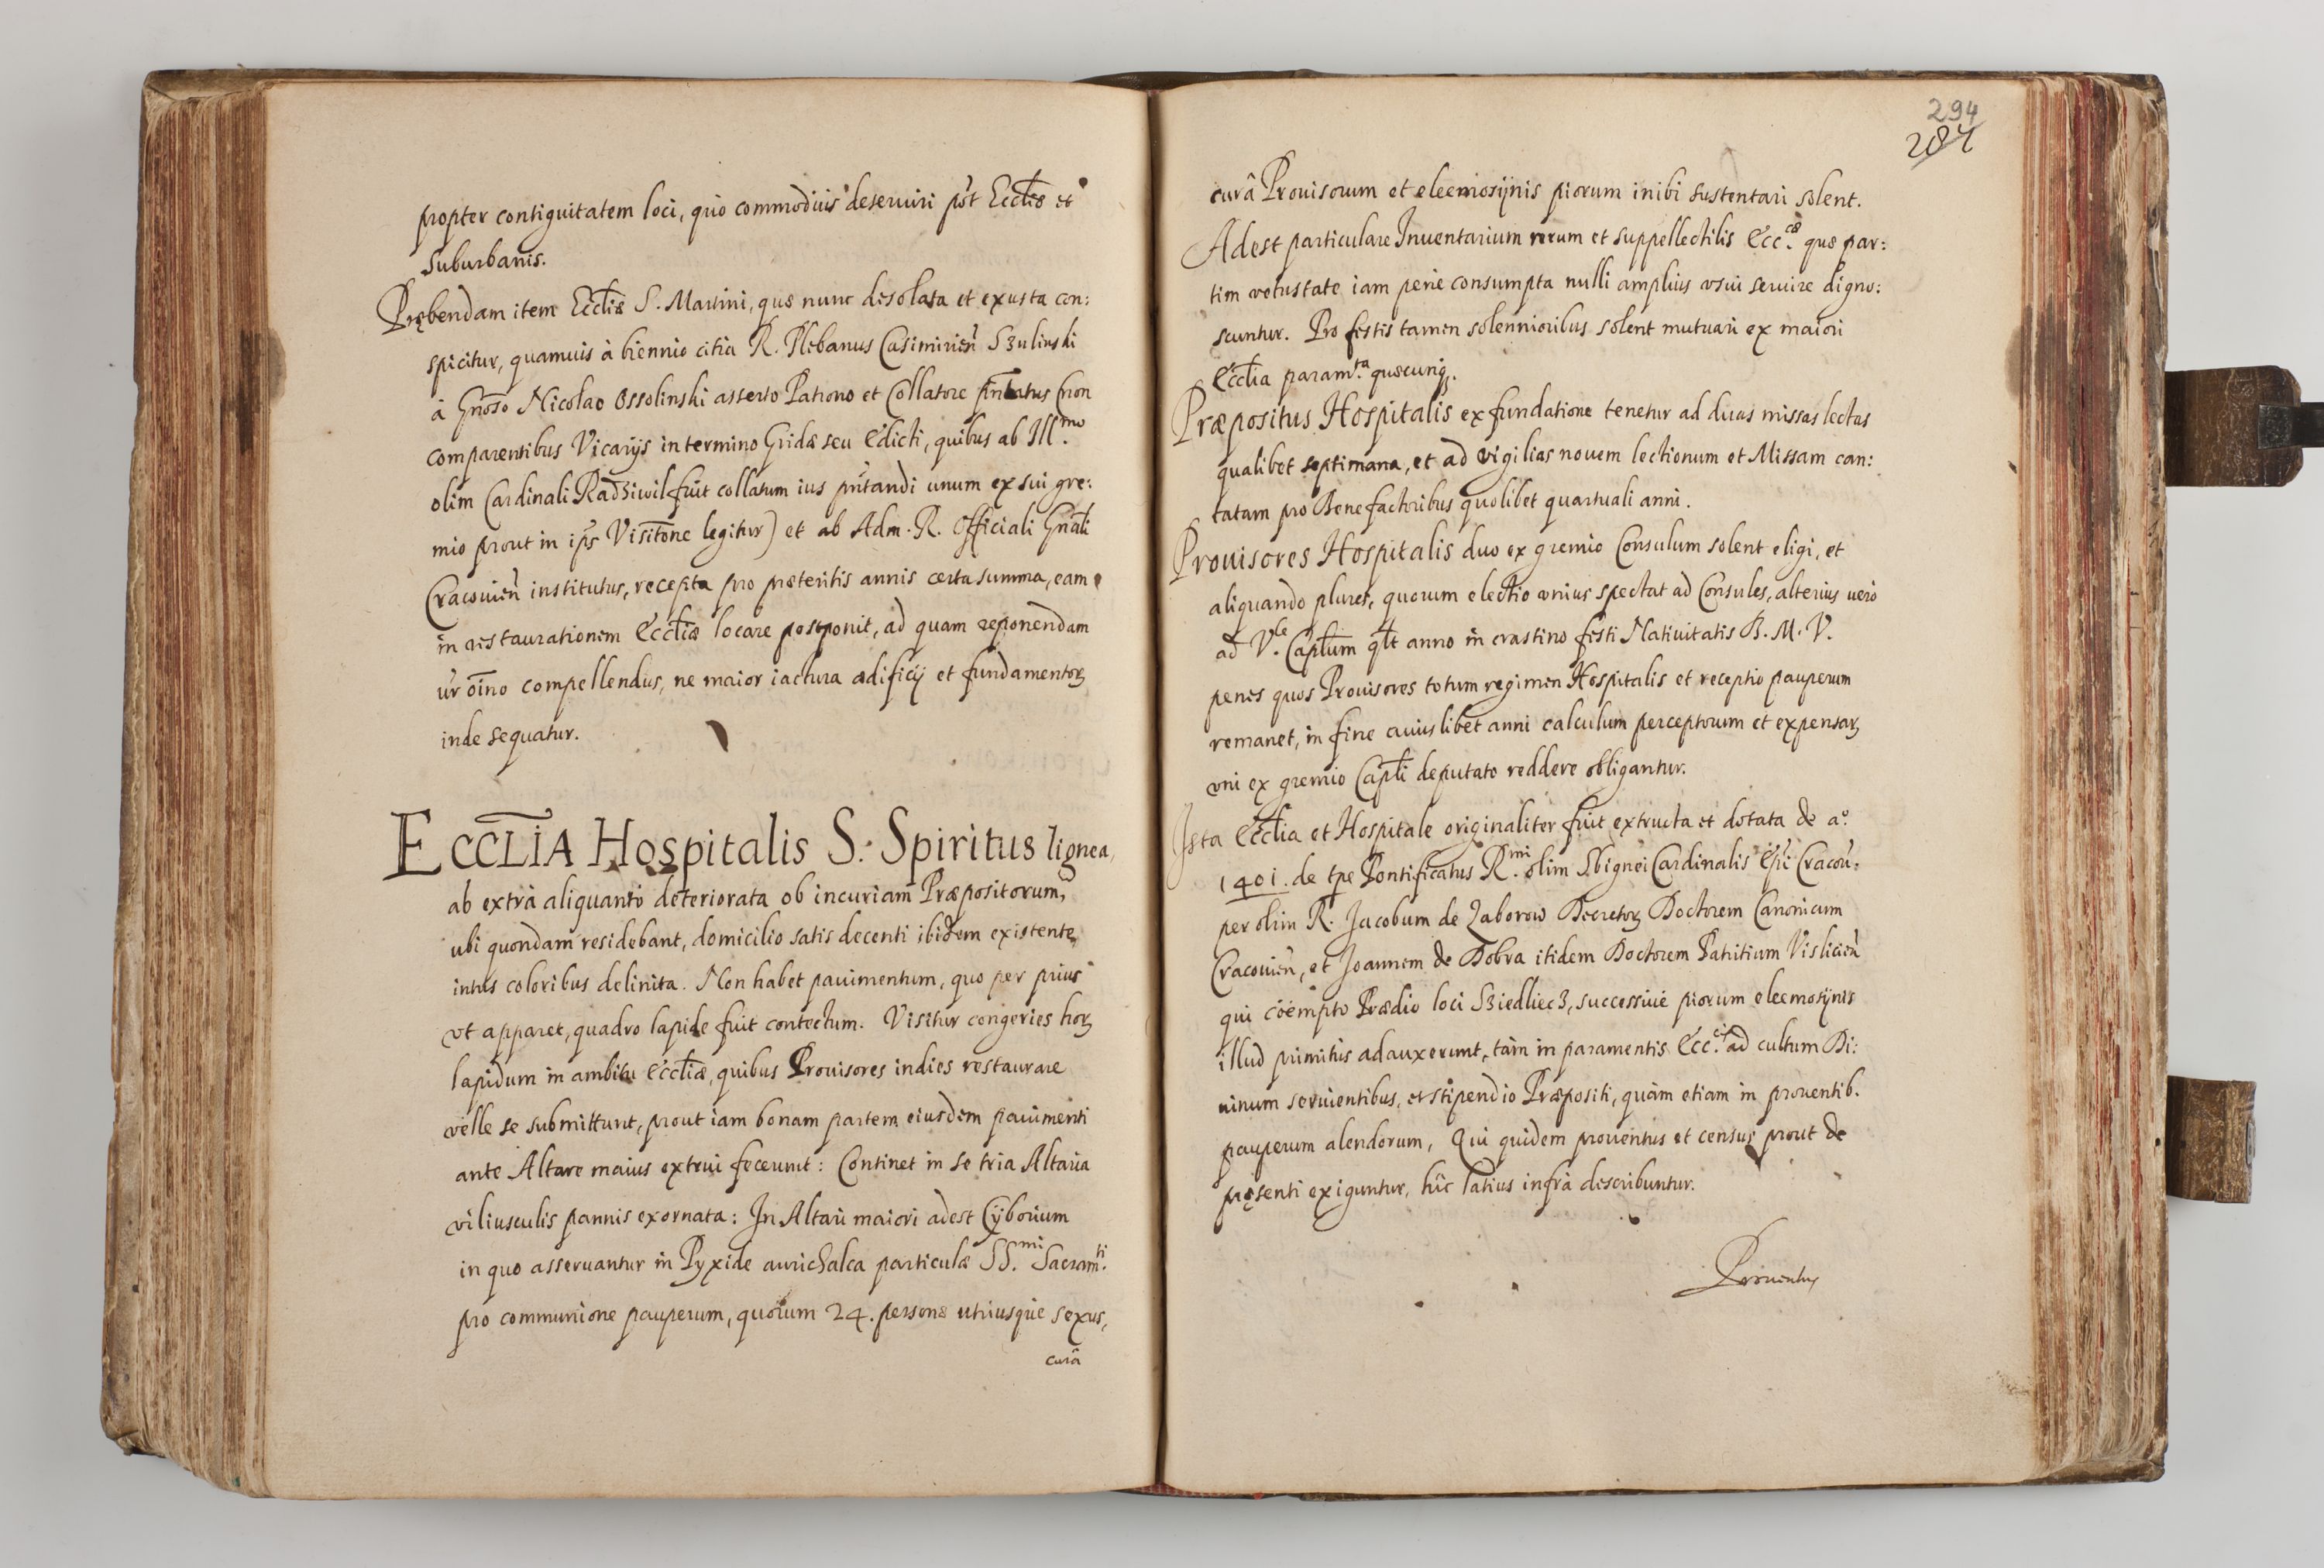 propter contiguitatem loci, quo commodius deseruiri põt Eccliæ et
suburbanis.
Præbendam item Eccliæ S. Martini, quæ nunc desolata et exusta con:
spicitur, quamuis à biennio citra R. Plebanus Casimirień Szulinski
à Gñoso Nicolao Ossolinski asserto Patrono et Collatore pñtatus (non
comparentibus Vicarijs in termino Gridæ seu Edicti, quibus ab Ill.mo
olim Cardinali Radziwil fuit collatum ius pñtandi unum ex sui gre:
mio prout in ips Visitõne legitur) et ab Adm. R. Officiali Gñali
Cracouień institutus, recepta pro præteritis annis certa summa, eam
in restaurationem Eccliæ locare postponit, ad quam reponendam
ur õino compellendus, ne maior iactura ædificij et fundamentoꝝ
inde sequatur.
ECCLIA Hospitalis S. Spiritus lignea,
ab extrà aliquantò deteriorata ob incuriam Præpositorum,
ubi quondam residebant, domicilio satis decenti ibidem existente,
intus coloribus delinita. Non habet pauimentum, quo per prius
vt apparet, quadro lapide fuit contectum. Visitur congeries hoꝝ
lapidum in ambitu Eccliæ, quibus Prouisores indies restaurare
velle se submittunt, prout iam bonam partem eiusdem pauimenti
ante Altare maius extrui fecerunt: Continet in se tria Altaria
viliusculis pannis exornata: In Altari maiori adest Cyborium
in quo asseruantur in Pyxide aurichalca particulæ SS.mi Sacram.ti
pro communione pauperum, quorum 24. personæ utriusque sexus,
curâ
294
284
curâ Prouisorum et eleemosijnis piorum inibi sustentari solent.
Adest particulare Inuentarium rerum et suppellectilis Ecc.cæ quæ par:
tim vetustate iam penè consumpta nulli amplius vsui seruire digno:
scuntur. Pro festis tamen solennioribus solent mutuari ex maiori
Ecclia param.ta quæcunqꝫ.
Præpositus Hospitalis ex fundatione tenetur ad duas missas lectas
qualibet septimana, et ad vigilias nouem lectionum et Missam can:
tatam pro Benefactoribus quolibet quartuali anni.
Prouisores Hospitalis duo ex gremio Consulum solent eligi, et
aliquando plures, quorum electio vnius spectat ad Consules, alterius uero
ad V.le Capłum qlt anno in crastino festi Natiuitatis B. M. V.
penes quos Prouisores totum regimen Hospitalis et receptio pauperum
remanet, in fine cuiuslibet anni calculum perceptorum et expensaꝝ
vni ex gremio Capłi deputato reddere obligantur.
Ista Ecclia et Hospitale originaliter fuit extructa et dotata de a.o
1401. de tpe Pontificatus R.mi olim Sbignei Cardinalis Epi Cracou:
per olim R. Jacobum de Zaborow Decretoꝝ Doctorem Canonicum
Cracouień, et Joannem de Dobra itidem Doctorem Patritium Visliciẽn
qui coëmpto Prædio loci Sziedliecz, successiue piorum eleemosijnis
illud primitus adauxerunt, tàm in paramentis Ecc.cis ad cultum Di:
uinum seruientibus, et stipendio Præpositi, quàm etiam in prouentib.
pauperum alendorum, Qui quidem prouentus et census prout de
præsenti exiguntur, hîc latius infrà describuntur.
Prouentus